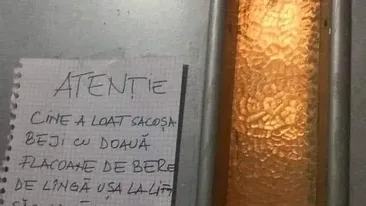 ATENȚIE
CINE A LOAT SACOȘA
BEJI CU DOAUĂ
FLACOANE DE BERE
DE LÎNGĂ UȘA LA